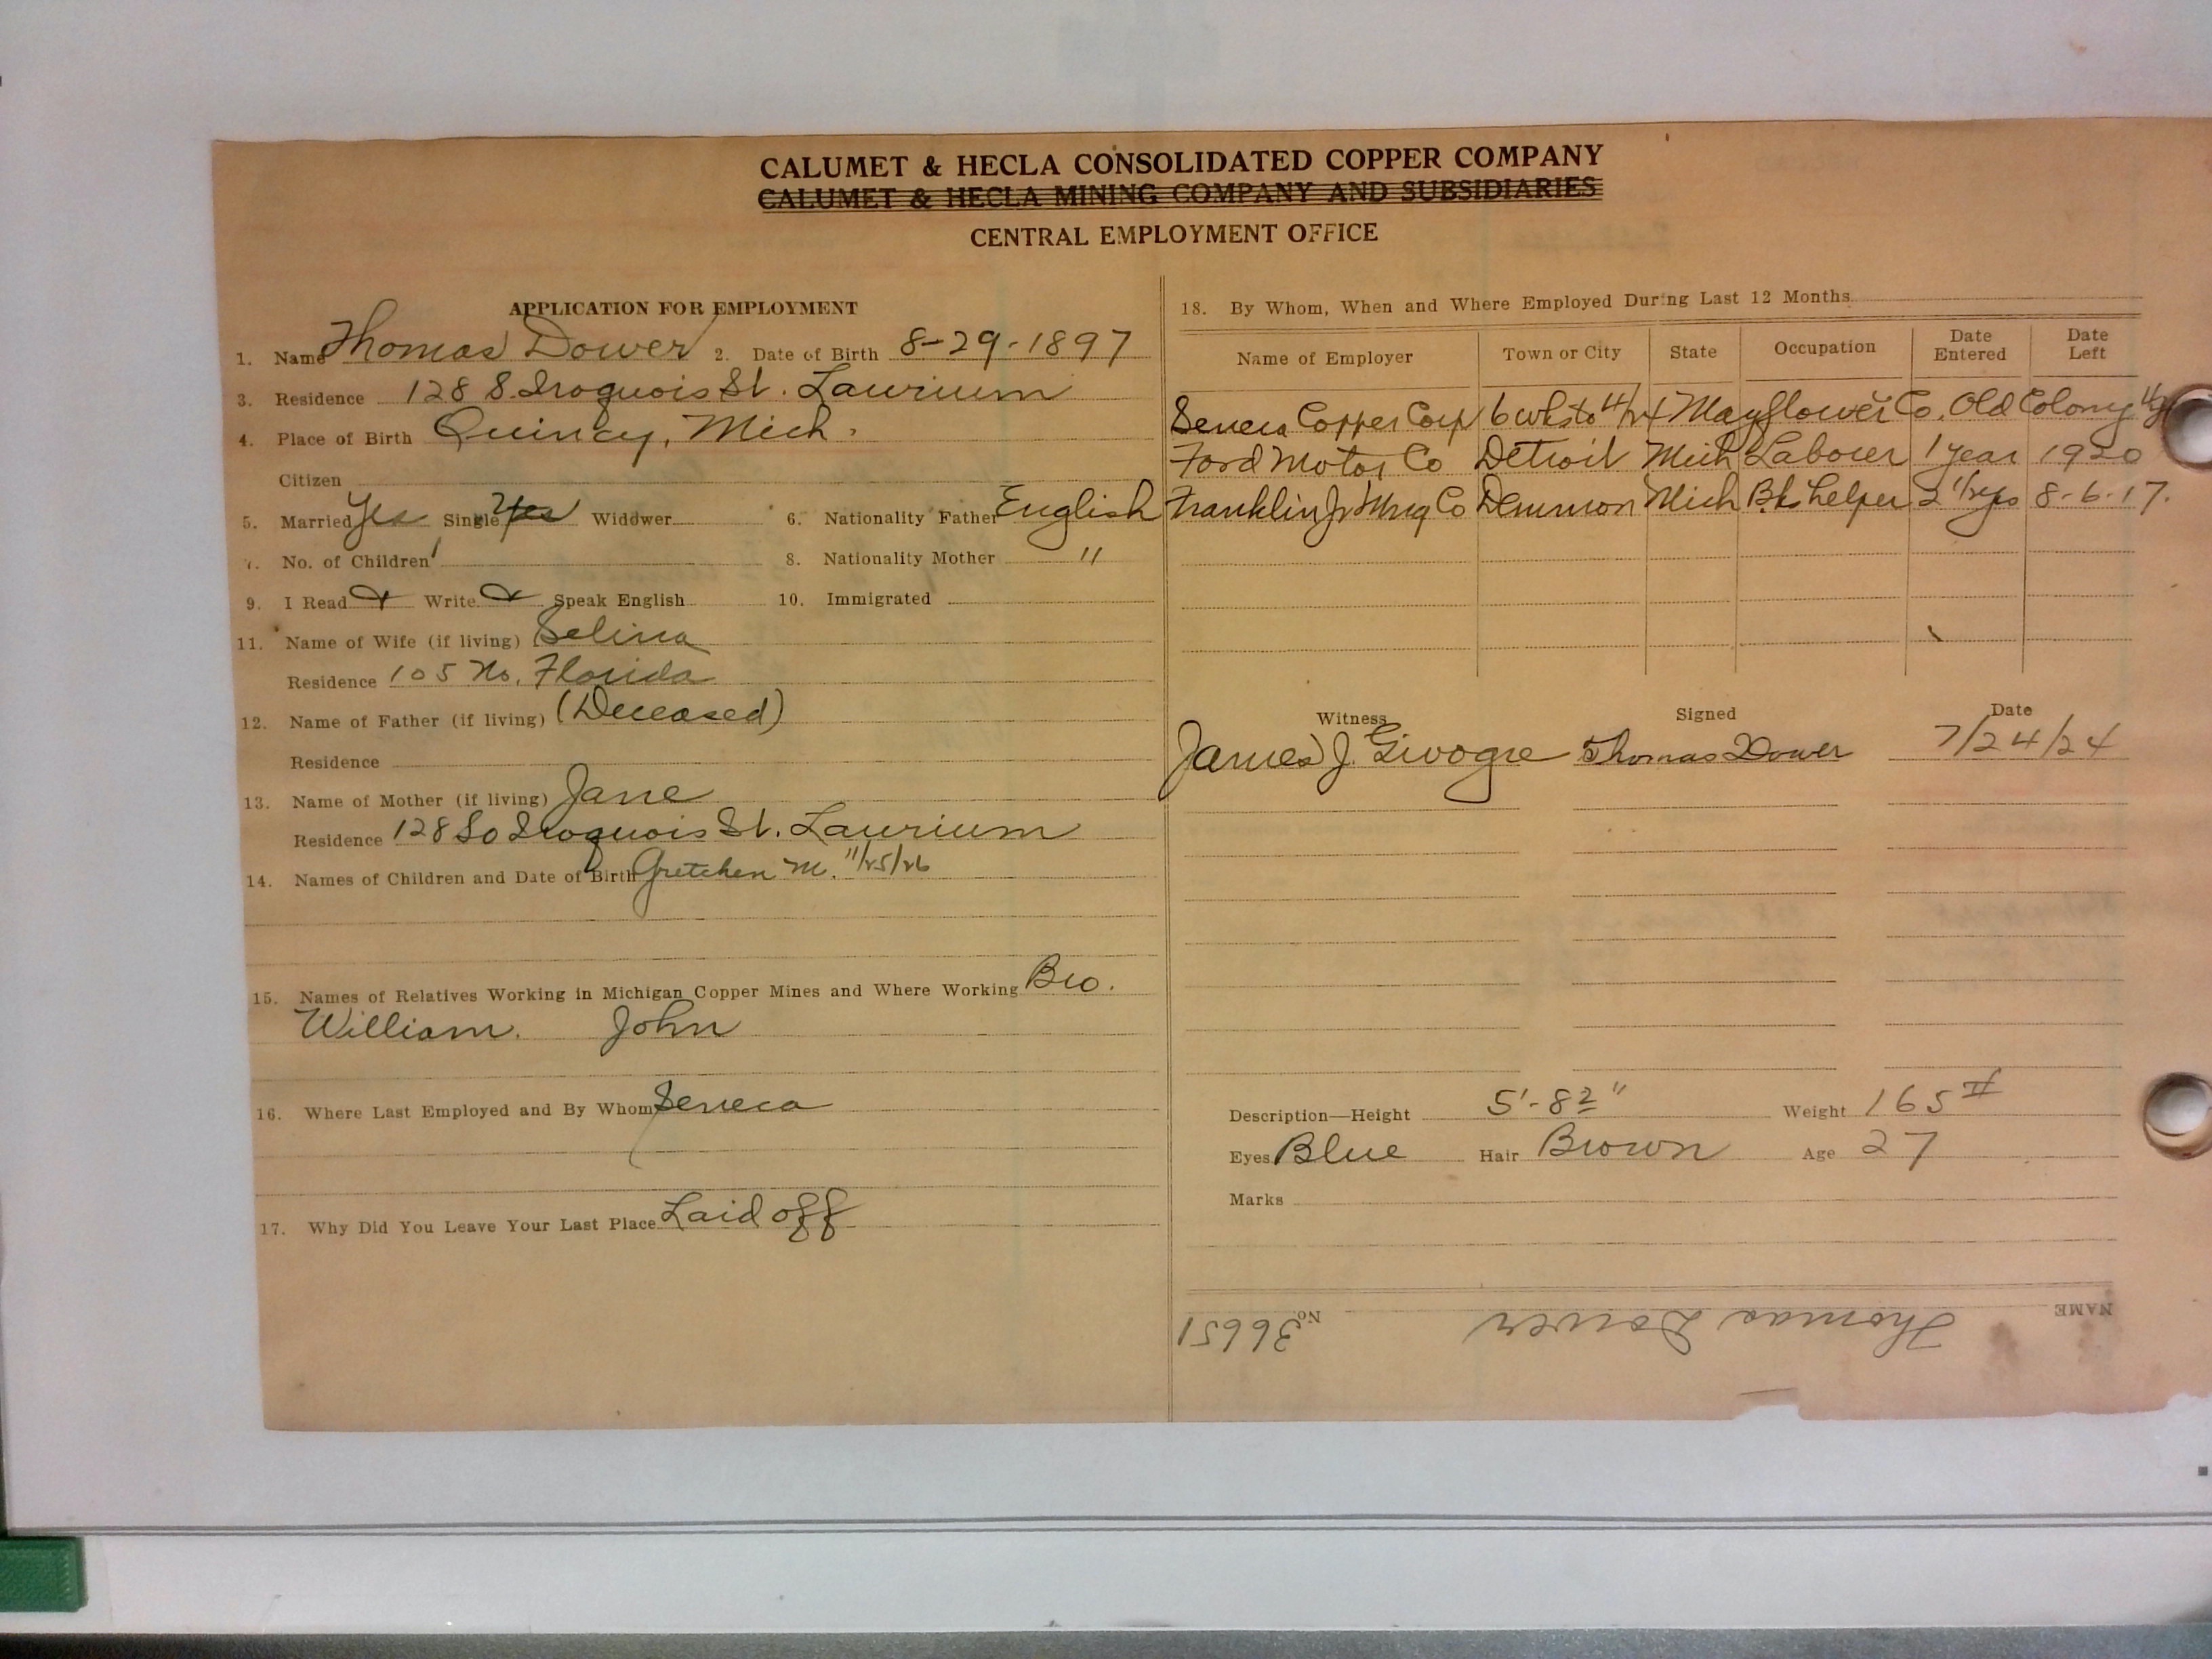 CALUMET & HECLA CONSOLIDATED COPPER COMPANY
CALUMET & HECLA MINING COMPANY AND SUBSIDIARIES
CENTRAL EMPLOYMENT OFFICE
APPLICATION FOR EMPLOYMENT
1. Name Thomas Dower 2. Date of Birth 8-29-1897
3. Residence 128 S. Iroquois St. Laurium
4. Place of Birth Quincy, Mich.
Citizen
5. Married Yes Single Yes Widower 6. Nationality Father English
7. No. of Children 1 8. Nationality Mother "
9. I Read Write Speak English 10. Immigrated
11. Name of Wife (if living) Selina
Residence 105 No. Florida
12. Name of Father (if living) (Deceased)
Residence
13. Name of Mother (if living) Jane
Residence 128 So Iroquois St. Laurium
14. Names of Children and Date of Birth Gretchen M. 11/25/26
15. Names of Relatives Working in Michigan Copper Mines and Where Working Bro.
William. John
16. Where Last Employed and By Whom Seneca
17. Why Did You Leave Your Last Place Laid off
18. By Whom, When and Where Employed During Last 12 Months
Name of Employer Town or City State Occupation Date Entered Date Left
Seneca Copper Corp 6 wks to Mayflower Co. Old Colony
Ford Motor Co Detroit Mich Laborer 1 year 1920
Franklin Jr Mng Co Demmon Mich Bks helper 2 1/2 yrs 8-6-17.
Witness Signed Date
James J. Thomas Dower 7/24/24
Description—Height 5'-8 2" Weight 165 #
Eyes Blue Hair Brown Age 27
Marks
NAME Thomas Dower No. 36651